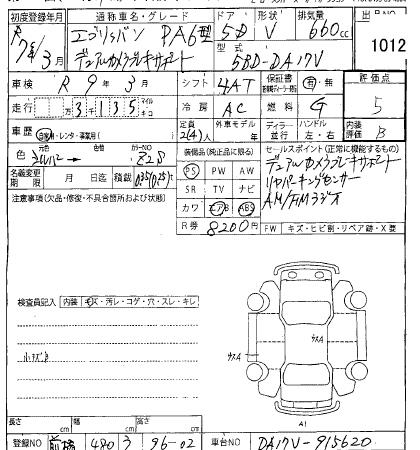 初度登録年月 通称車名・グレード ドア 形状 排気量 出品NO
R 7年 3月 エブリィバン PA 6型 5D V 660cc 1012
デュアルカメラブレーキサポート 型式 5BD-DA17V
車検 R 9年 3月 シフト 4AT 保証書 有・無 評価点 5
走行 万 3千135 マイル キロ 冷房 AC 燃料 G
車歴 自家用・レンタ・事業用( ) 定員 2(4)人 外車モデル 年 ディーラー 並行 ハンドル 左・右 内装評価 B
色 元色 シルバー カラーNO Z2S
装備品(純正品に限る) セールスポイント(正常に機能するもの)
名義変更期限 月 日迄 積載 0.35(0.25)t
PS PW AW デュアルカメラブレーキサポート
注意事項(欠品・修復・不具合箇所および状態)
SR TV ナビ リヤパーキングセンサー
カワ エアB ABS AM/FMラジオ
R券 8200円
FW キズ・ヒビ割・リペア跡・X要
検査員記入 内装 キズ・汚レ・コゲ・穴・スレ・キレ
小キズ有
ウスA
ウスA
A1
長さ cm 幅 cm 高さ cm
登録NO 前橋 480 す 96-02 車台NO DA17V-915620